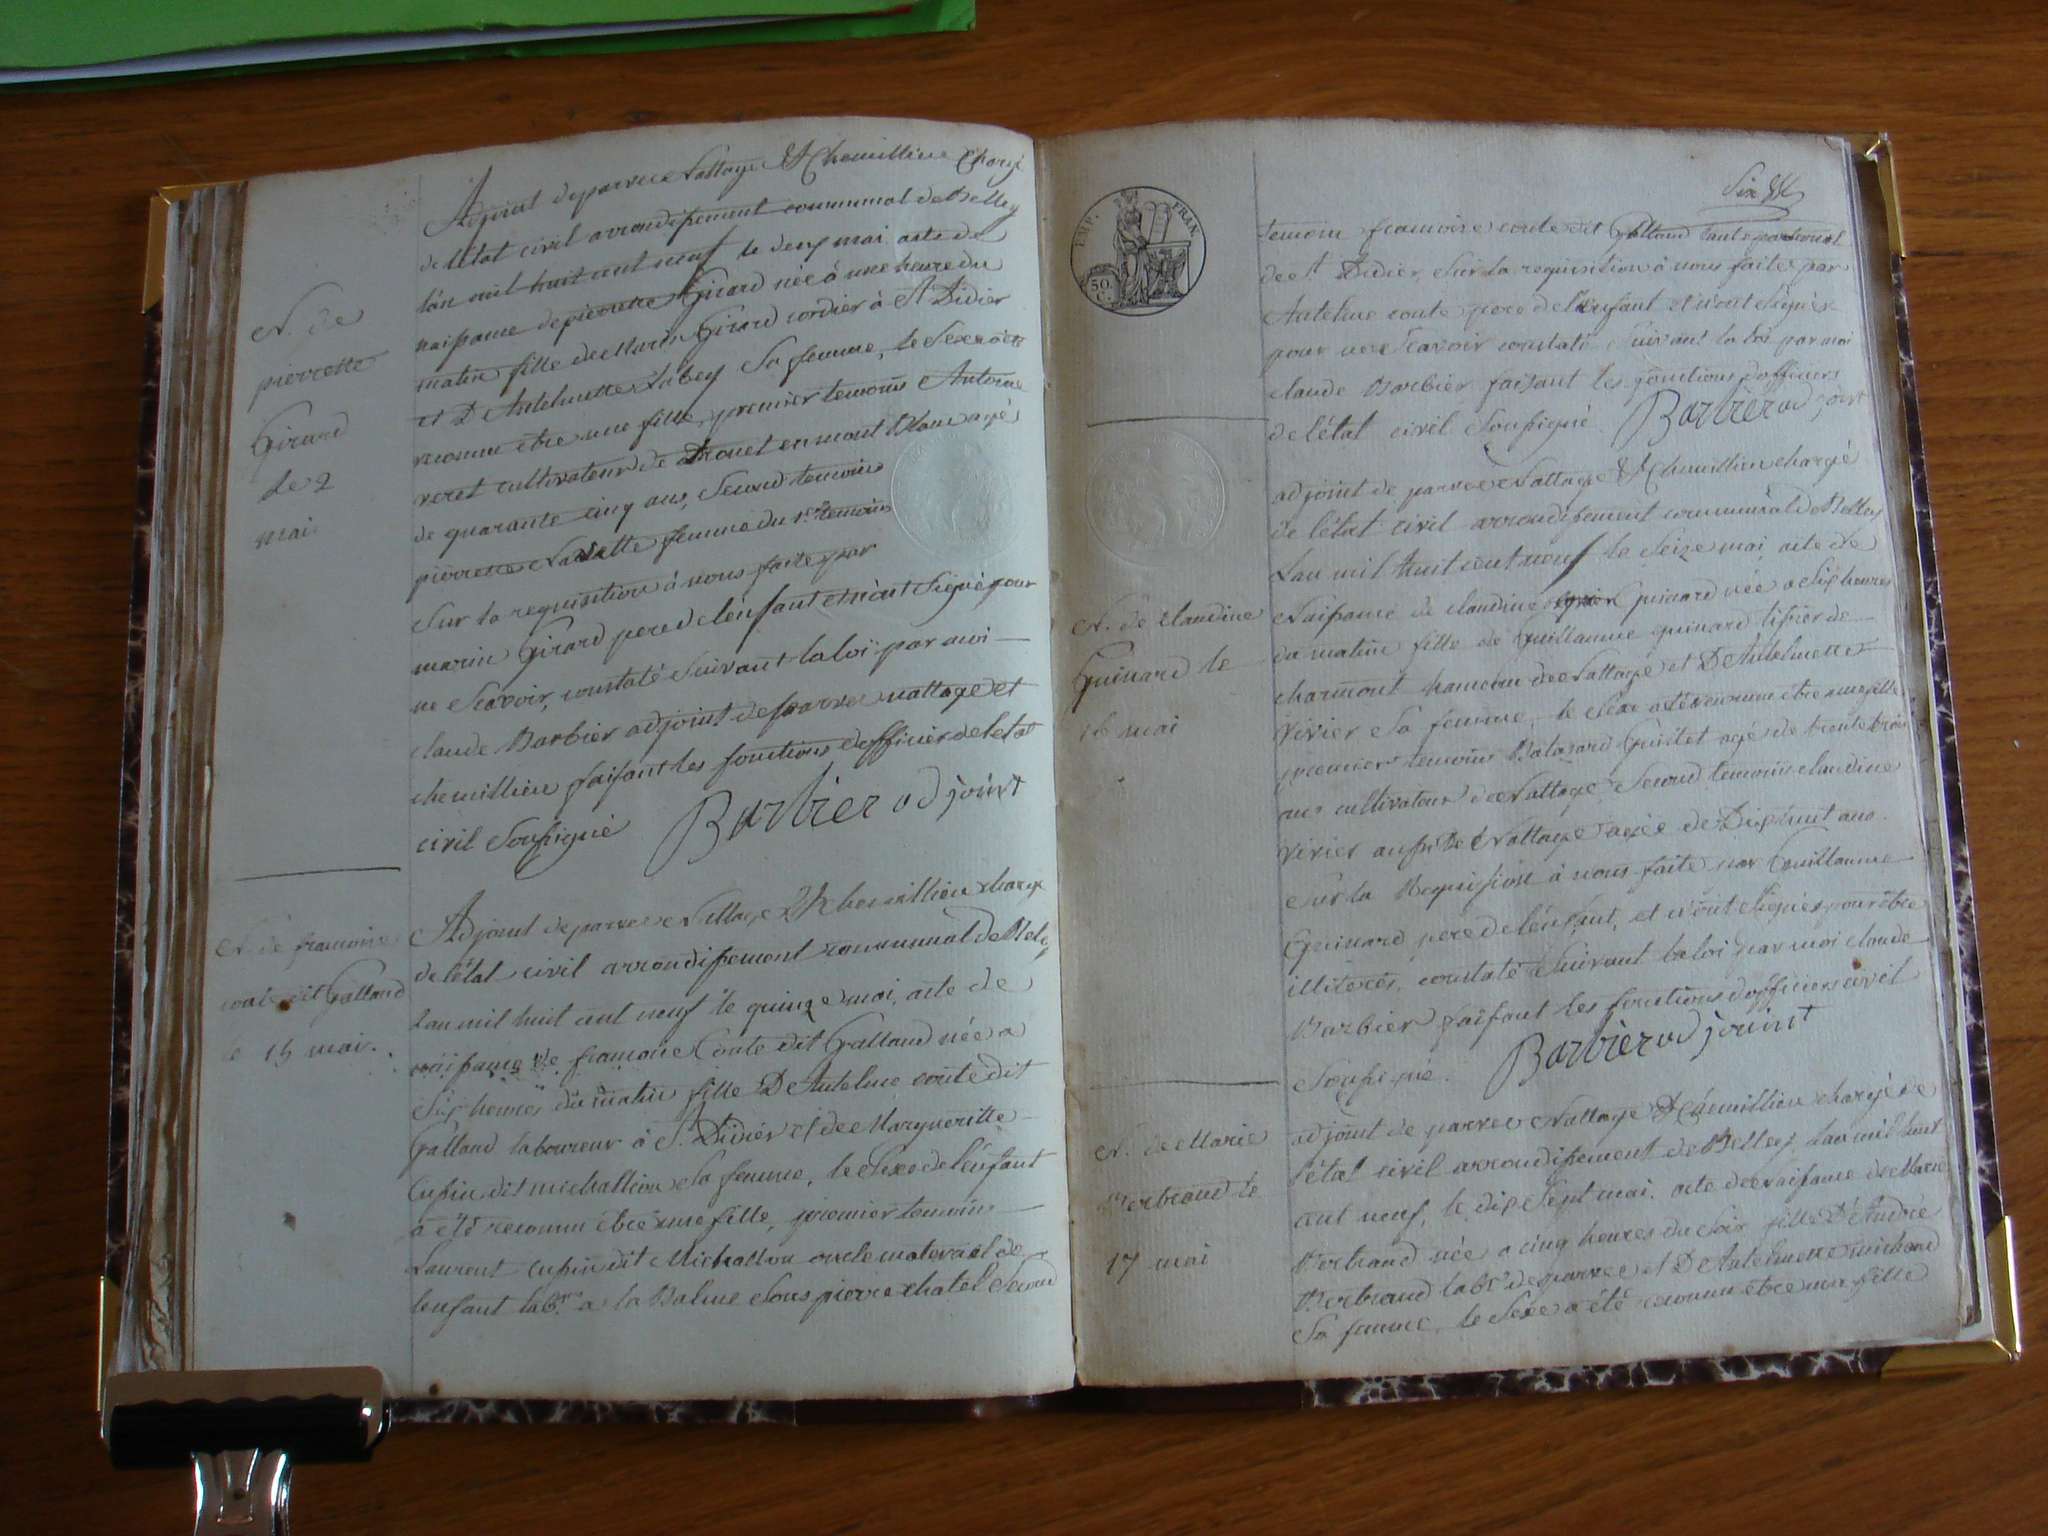 Adjoint de parves Nattage & Chemillieu Chargé
de l'état civil arrondissement communal de Belley
l'an mil huit cent neuf le deux mai acte de
naissance de pierrette Girard née à une heure du
matin fille de Marin Girard cordier à St Didier
et D Antelmette Labey sa femme, le sexe a été
reconnu être une fille, premier temoins Antoine
veret cultivateur de
de quarante cinq ans, Second temoins
pierrette femme du 1er temoins
Sur la requisition à nous faite par
marin Girard pere de l'enfant et n'ont signé pour
ne Scavoir, constaté Suivant la loi par moi
claude Barbier adjoint de parves nattage et
chemillieu faisant les fonctions d'officier de l'etat
civil Soussigné Barbier adjoint
N. de
pierrette
Girard
le 2
mai
Adjoint de parves Nattage & Chemillieu charge
de l'état civil arrondissement communal de Belley
L'an mil huit cent neuf le quinze mai, acte de
naissance de francoise Conte dit Galland née a
Six heures du matin fille D Antelme conte dit
Galland laboureur à St Didier et de Margueritte
Cussin dit michallion sa femme, le Sexe de l'enfant
a été reconnu être une fille, premier temoins
Laurent cussin dit Michallon oncle maternel de
lenfant labr. a la Balme Sous pierre chatel Second
N. de francoise
conte dit Galland
le 15 mai.
Six
EMP. FRAN.
50
C.
temoin francoise conte dit Galland tante
de St Didier, Sur la requisition à nous faite par
Antelme conte pere de l'enfant et n'ont Signés
pour ne Scavoir constaté Suivant la loi par moi
claude Barbier faisant les fonctions d'officiers
de l'état civil Soussigné. Barbier adjoint
adjoint de parves Nattage & Chemillieu chargé
de l'état civil arrondissement communal de Belley
L'an mil huit cent neuf le Seize mai, acte de
Naissance de claudine Guinard née a Six heures
du matin fille de Guillaume guinard tissier de
charmont hameau de Nattage et D Antelmette
Vivier Sa femme, le Sexe a été reconnu être une fille
premier temoins Balazard Guistet agé de trente trois
ans cultivateur de Nattage Second temoins claudine
Vivier aussi de Nattage agée de Dix huit ans.
Sur la Requisition à nous faite par Guillaume
Guinard pere de l'enfant, et n'ont Signés pour être
illiterés, constaté Suivant la loi par moi claude
Barbier faisant les fonctions d'officiers civil
Soussigné. Barbier adjoint
N. de claudine
Guinard le
16 mai
adjoint de parves Nattage & Chemillieu chargé de
l'état civil arrondissement de Belley L'an mil huit
cent neuf, le dix Sept mai. acte de Naissance de Marie
Bertrand née a cinq heures du Soir fille D'André
Bertrand labr de parves et D Antelmette michaud
Sa femme, le Sexe a été reconnu être une fille
N. de Marie
Bertrand le
17 mai